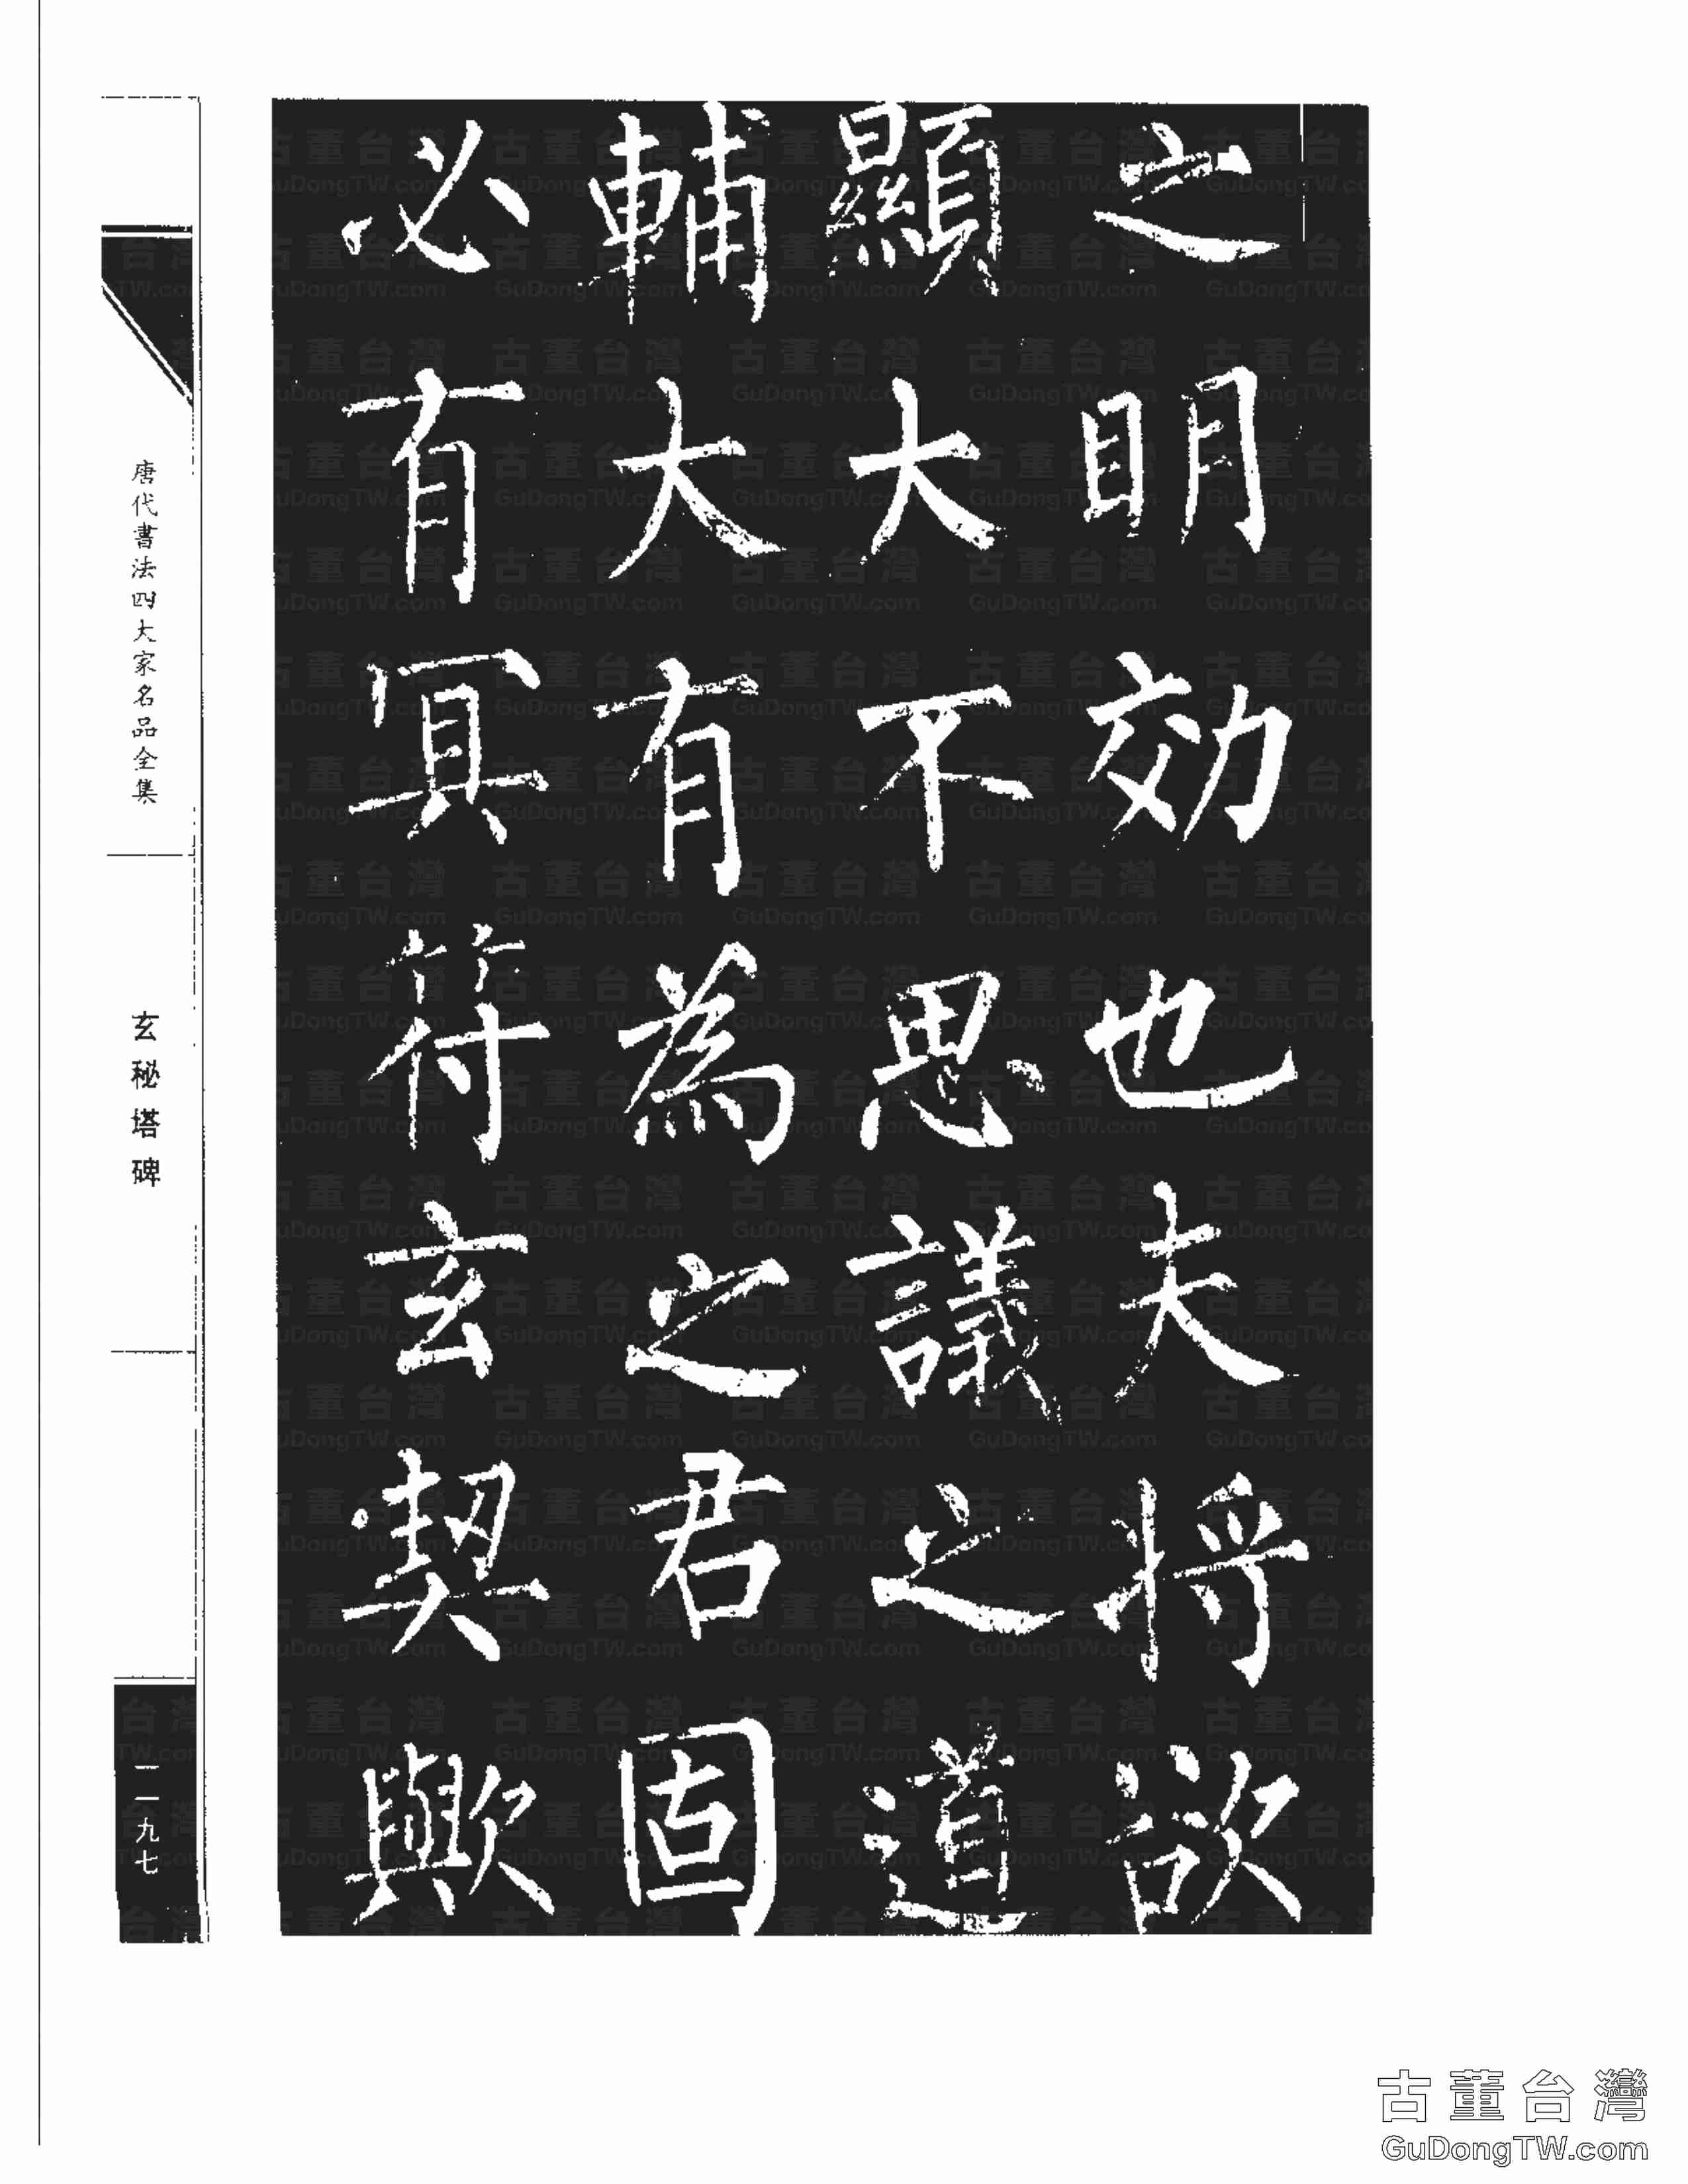 之明効也夫將欲
顯大不思議之道
輔大有為之君固
必有冥符玄契歟
唐代書法四大家名品全集
玄秘塔碑
一一九七
古董台灣
GuDongTW.com